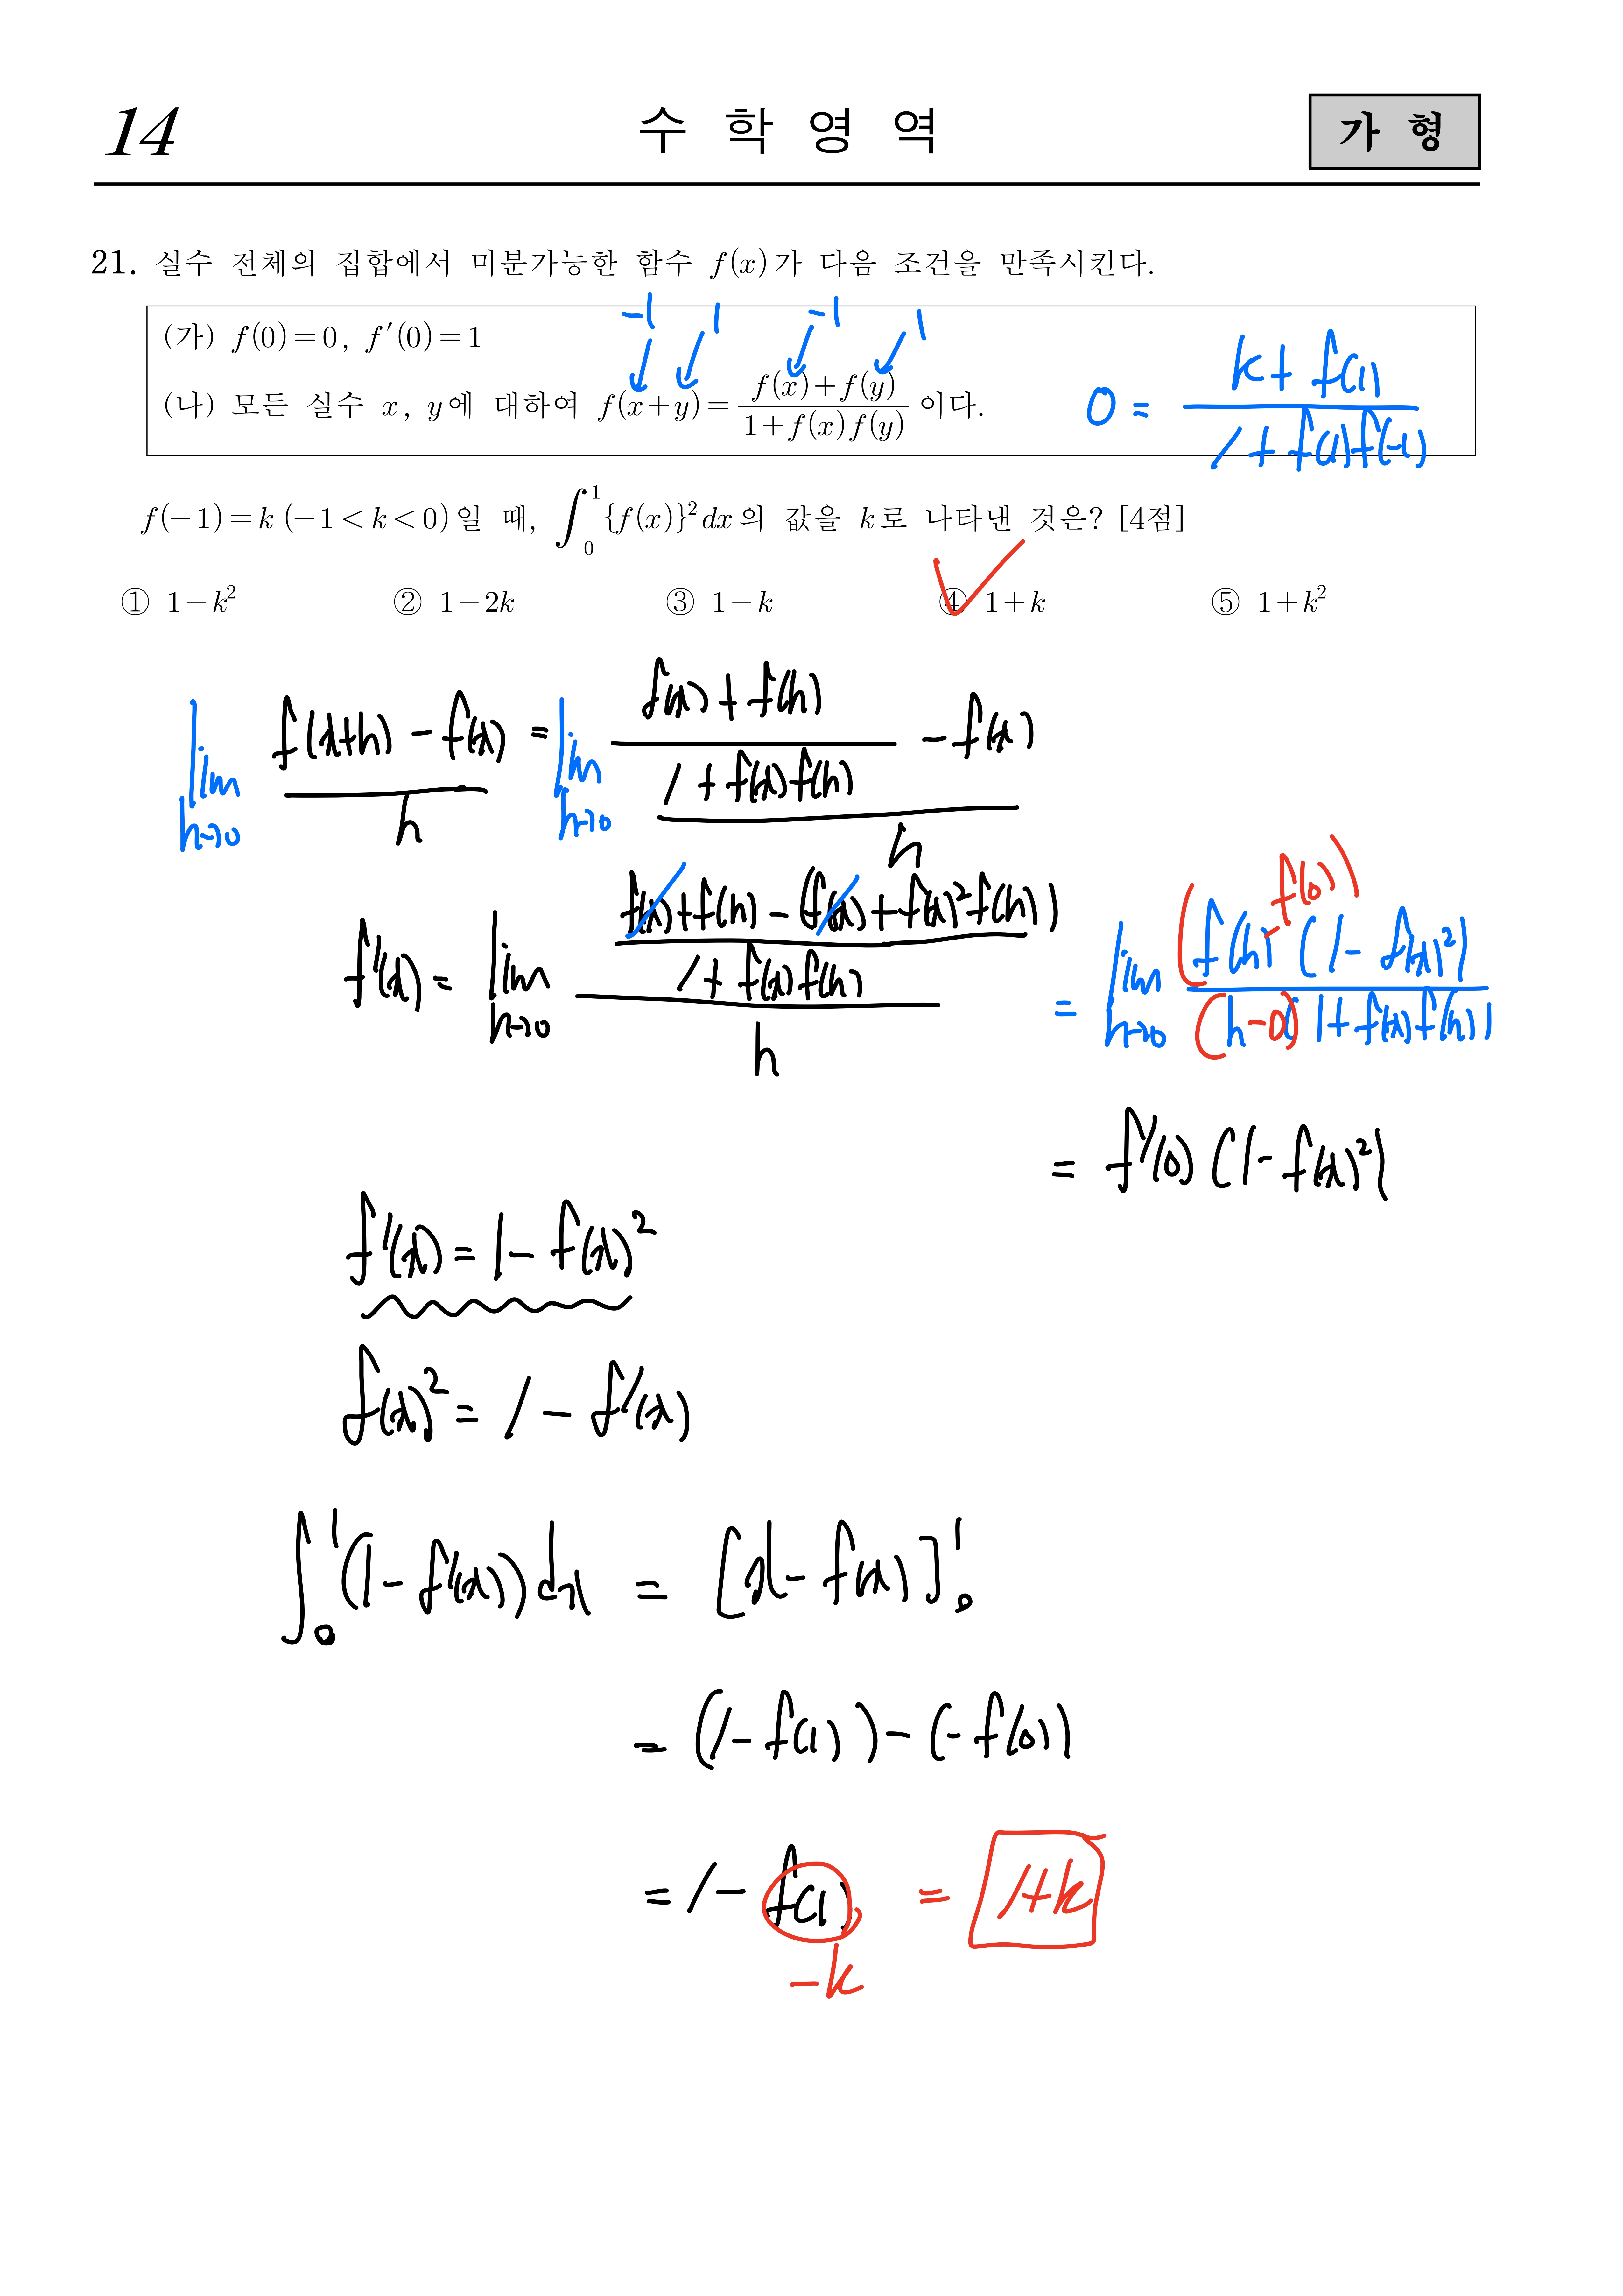 14 수 학 영 역 가 형
21. 실수 전체의 집합에서 미분가능한 함수 f(x)가 다음 조건을 만족시킨다.
-1 1 -1 1
(가) f(0)=0, f′(0)=1
(나) 모든 실수 x, y에 대하여 f(x+y)=\frac{f(x)+f(y)}{1+f(x)f(y)} 이다.
0 = \frac{k+f(1)}{1+f(1)f(-1)}
f(-1)=k (-1<k<0)일 때, \int_0^1 {f(x)}^2 dx의 값을 k로 나타낸 것은? [4점]
① 1-k^2 ② 1-2k ③ 1-k ④ 1+k ⑤ 1+k^2
\lim_{h→0} \frac{f(x+h)-f(x)}{h} = \lim_{h→0} \frac{\frac{f(x)+f(h)}{1+f(x)f(h)} - f(x)}{h}
f'(x) = \lim_{h→0} \frac{\frac{f(x)+f(h)-(f(x)+f(x)^2f(h))}{1+f(x)f(h)}}{h} = \lim_{h→0} \frac{(f(h)-f(0))(1-f(x)^2)}{(h-0)(1+f(x)f(h))}
= f'(0)(1-f(x)^2)
f'(x) = 1-f(x)^2
f(x)^2 = 1-f'(x)
\int_0^1 (1-f'(x))dx = [x-f(x)]_0^1
= (1-f(1))-(-f(0))
= 1-f(1) = 1+k
-k